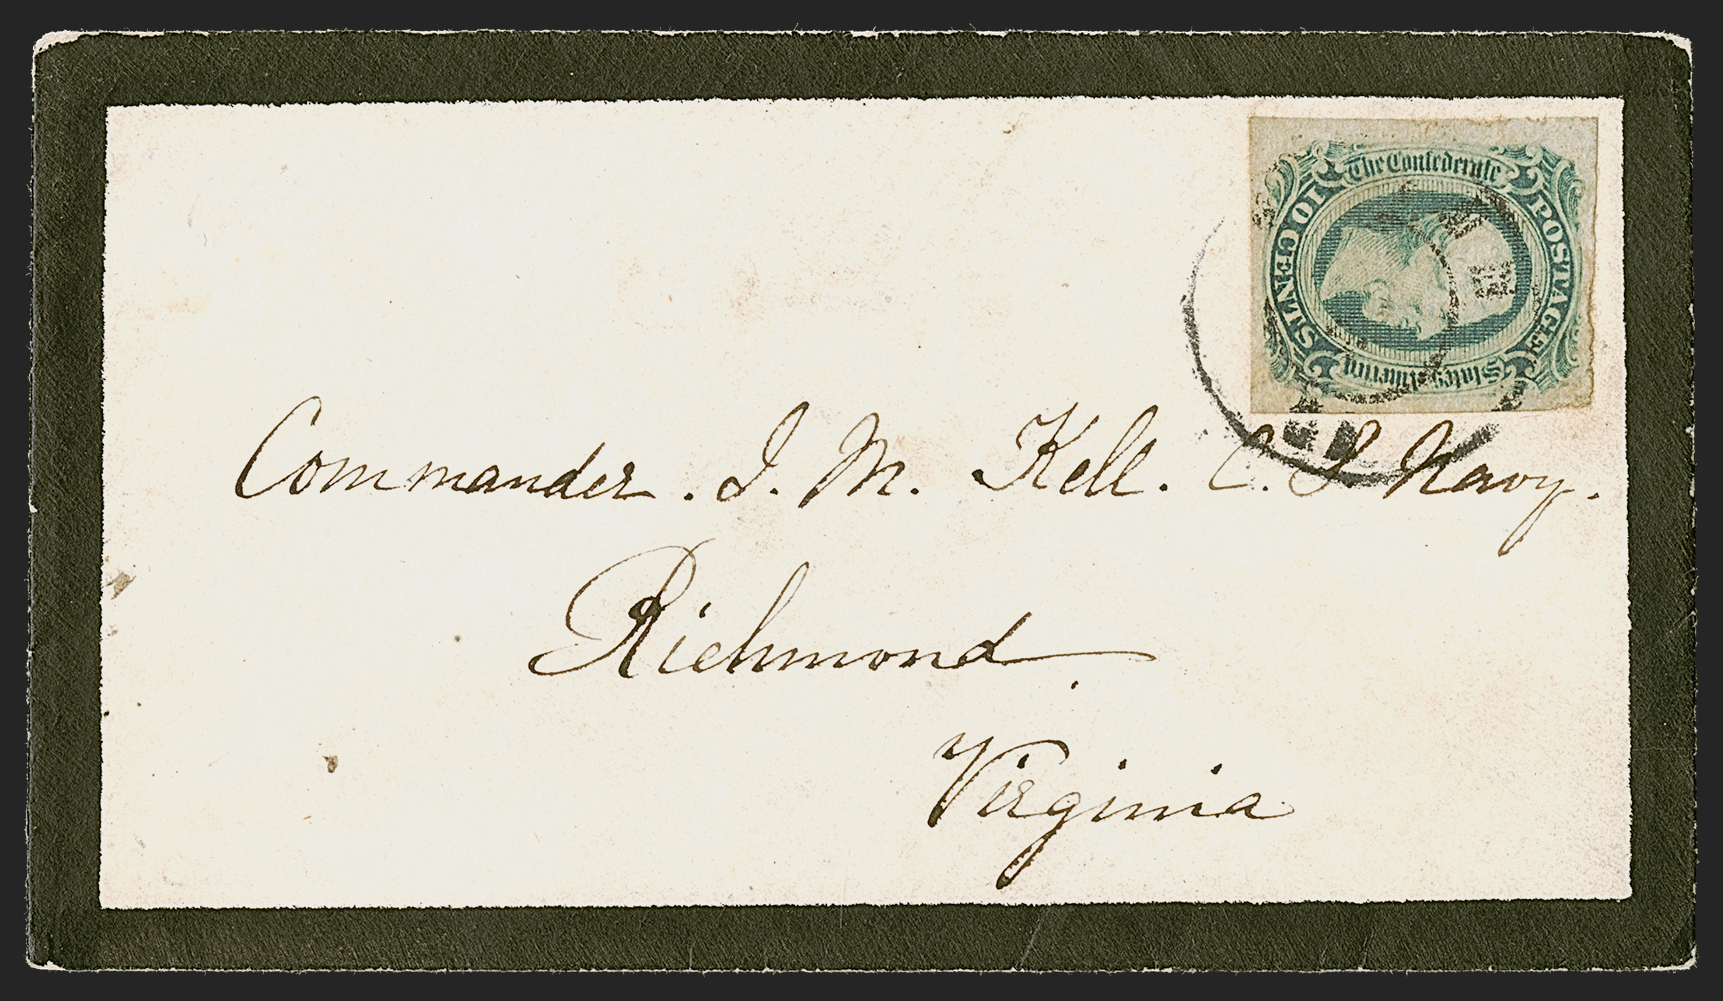 The Confederate
POSTAGE
States America
10 CENTS
Commander. J. M. Kell. C. S Navy.
Richmond
Virginia